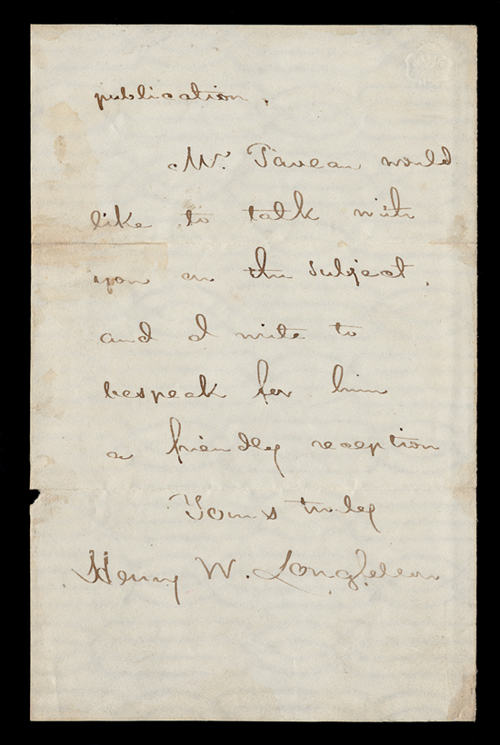 publication.
Mr. Tavean would
like to talk with
you on the subject,
and I write to
bespeak for him
a friendly reception
Yours truly
Henry W. Longfellow